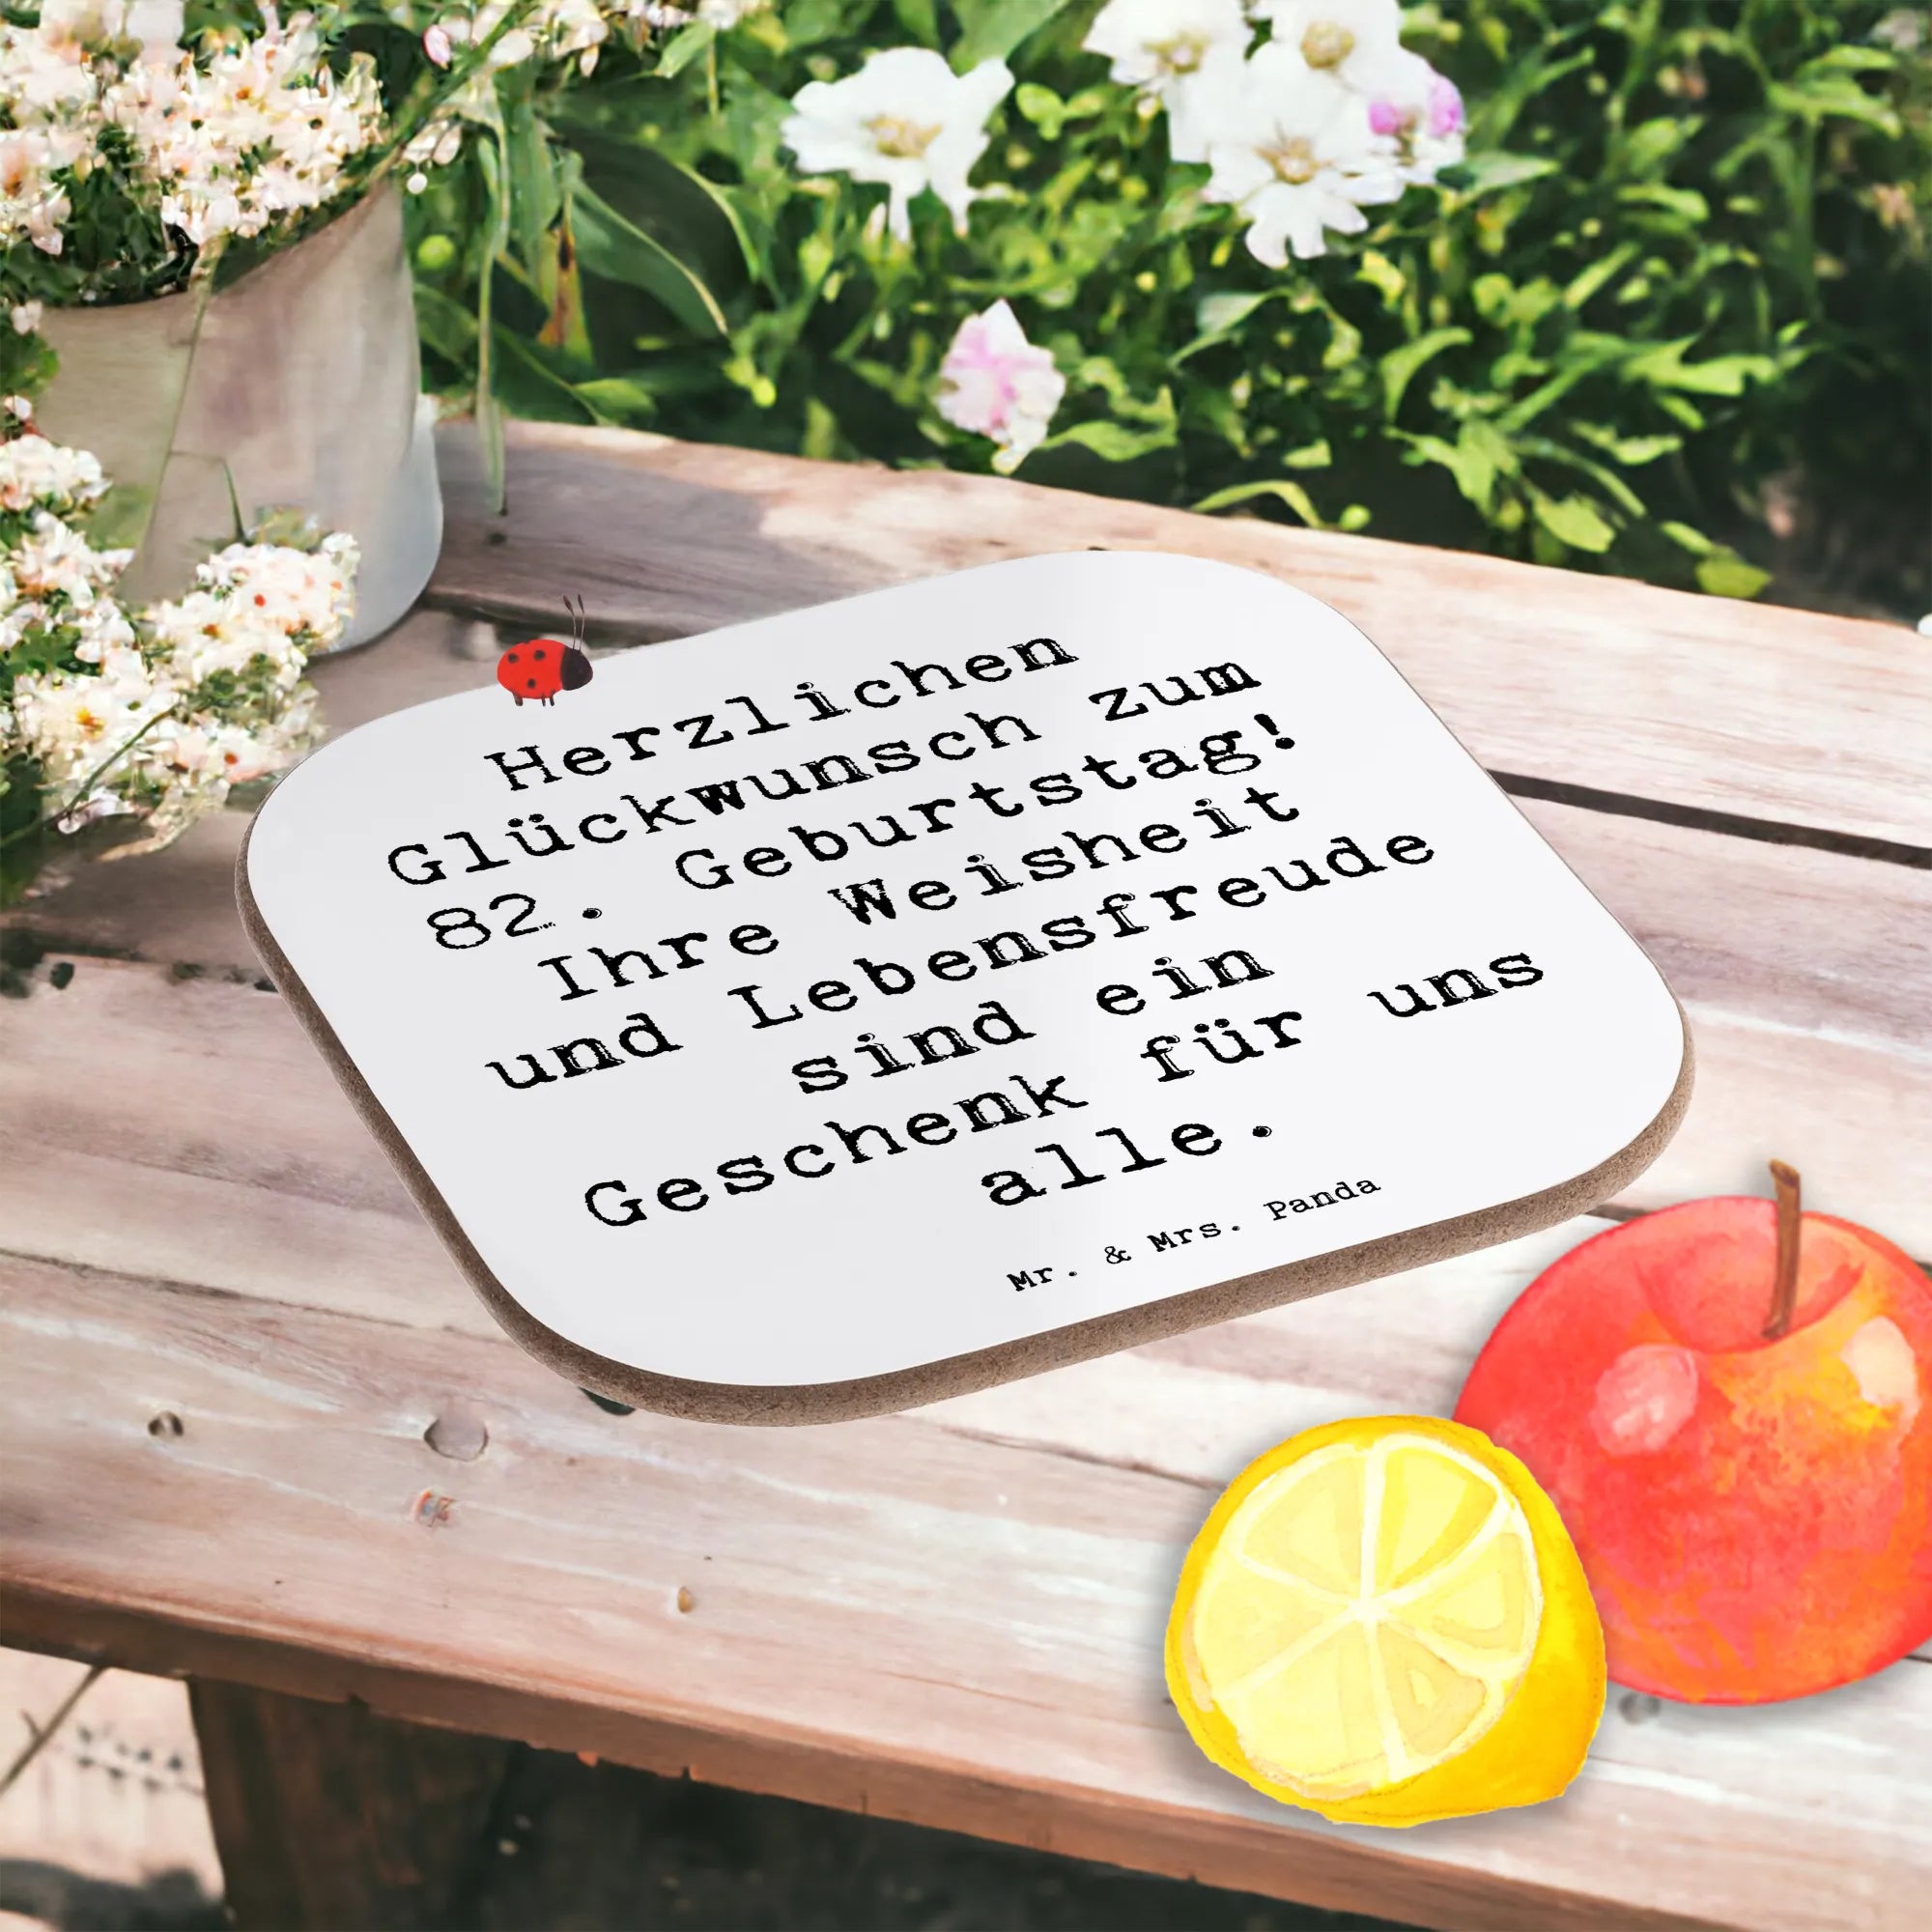 Herzlichen
Glückwunsch zum
82. Geburtstag!
Ihre Weisheit
und Lebensfreude
sind ein
Geschenk für uns
alle.
Mr. & Mrs. Panda